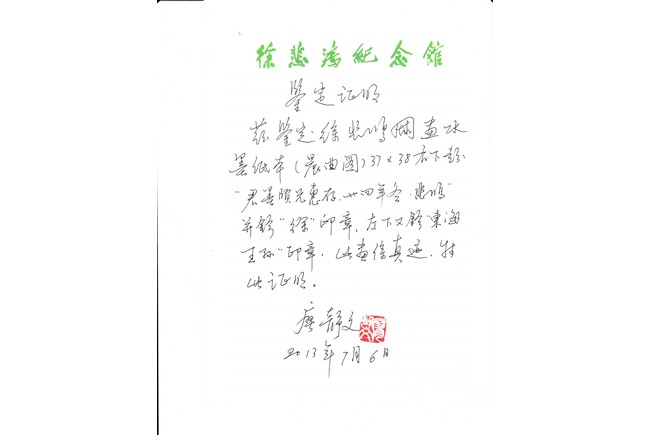 徐悲鸿纪念馆
鉴定证明
兹鉴定徐悲鸿国画水
墨纸本(晨曲图)37×38右下题
"君善贤兄惠存.廿四年冬.悲鸿"
并钤"徐"印章.左下又钤"東海
王孙"印章.此画係真迹.特
此证明。
廖静文
2013年7月6日